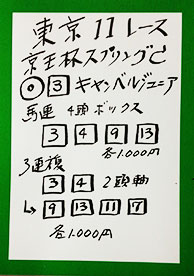 東京11レース
京王杯スプリングC
◎ 3 キャンベルジュニア
馬連 4頭ボックス
3 4 9 13
各1.000円
3連複
3 4 2頭軸
↳ 9 13 11 7
各1.000円